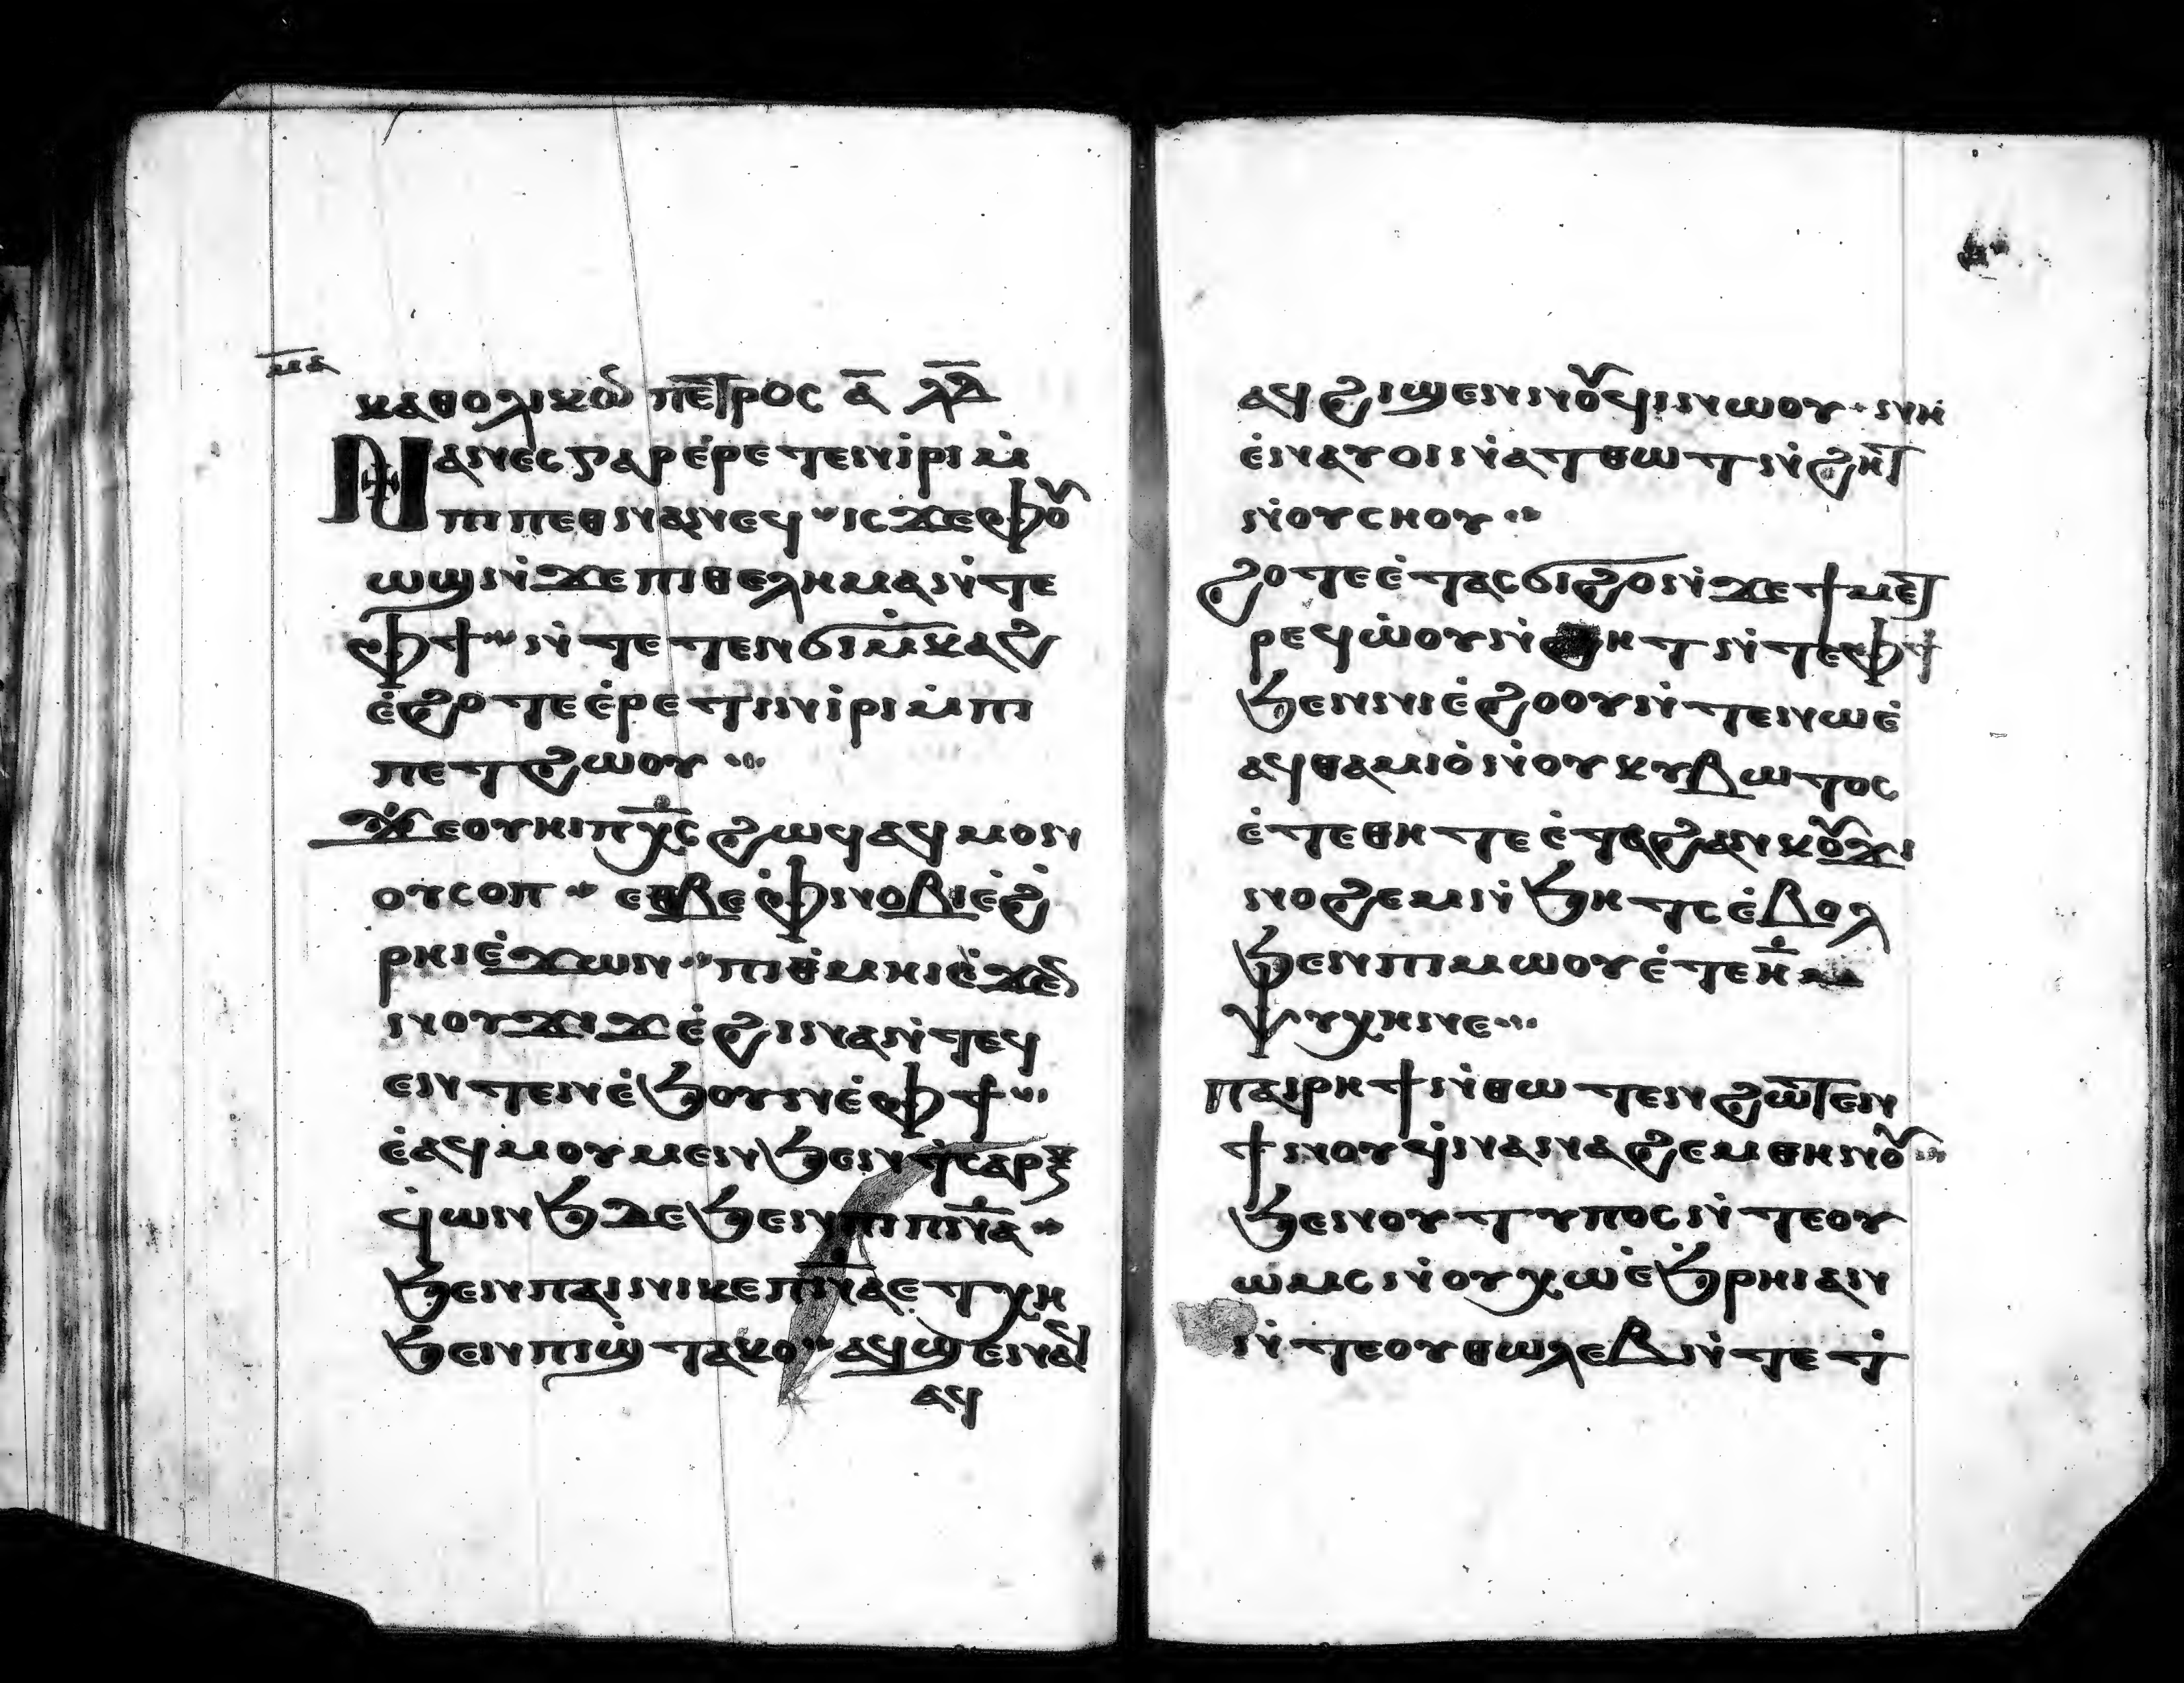 ⲙⲁ
ⲕⲁⲑⲟⲗⲓⲕⲟⲛ ⲡⲉⲧⲣⲟⲥ ⲁ̄ ⲗ̄ⲇ̄
Ⲛⲁⲛⲉⲥ ⲅⲁⲣ ⲉ̇ⲣⲉⲧⲉⲛⲓ̇ⲣⲓ ⲙ̇
ⲡⲓⲡⲉⲑⲛⲁⲛⲉϥ ⲓⲥϫⲉ ϥ̇ⲟⲩ
ⲱϣ ⲛ̇ϫⲉ ⲡⲓⲑⲉⲗⲏⲙⲁ ⲛ̇ⲧⲉ
ⲫϯ ⲛ̇ⲧⲉⲧⲉⲛϭⲓⲙ̇ⲕⲁϩ
ⲉ̇ϩⲟⲧⲉ ⲉ̇ⲣⲉⲧⲓⲛⲓ̇ⲣⲓ ⲙ̇ⲡⲓ
ⲡⲉⲧϩⲱⲟⲩ
Ϫⲉ ⲟⲩⲏⲓ ⲡⲭ̄ⲥ̄ ϩⲱϥ ⲁϥⲙⲟⲩ
ⲟⲩⲥⲟⲡ ⲉⲑⲃⲉ ⲫ̇ⲛⲟⲃⲓ ⲉ̇ϩ̇
ⲣⲏⲓ ⲉ̇ϫⲱⲛ ⲡⲓⲑ̇ⲙⲏⲓ ⲉ̇ϫⲉⲛ
ⲛⲓⲟⲩϫⲓϫ ⲉ̇ ϩⲓⲛⲁ ⲛ̇ⲧⲉϥ
ⲉⲛⲧⲉⲛ ⲉ̇ϧⲟⲩⲛ ⲉ̇ⲫϯ
ⲉ̇ⲁϥⲙⲟⲩ ⲙⲉⲛ ϧⲉⲛ ⲧ̇ⲥⲁⲣⲝ
ϥ̇ⲱⲛϧ ⲇⲉ ϧⲉⲛ ⲡⲓⲡ̄ⲛ̄ⲁ̄
ϧⲉⲛ ⲡⲁⲓ ⲛⲓⲕⲉⲡ̄ⲛ̄ⲁ̄ ⲉⲧⲭⲏ
ϧⲉⲛ ⲡⲓϣ̇ⲧⲁⲕⲟ ⲁϥϣⲉⲛⲁϥ
ⲁϥ
ⲁϥϩⲓϣⲉⲛⲛⲟⲩϥⲓ ⲛⲱⲟⲩ ⲛⲏ
ⲉ̇ⲛⲁⲩⲟⲓ ⲛ̇ⲁⲧⲑⲱⲧ ⲛ̇ϩⲏⲧ
ⲛ̇ⲟⲩⲥⲏⲟⲩ
ϩⲟⲧⲉ ⲉ̇ⲧⲁⲥϭⲓϩⲟ ⲛ̇ϫⲉ ϯⲙⲉⲧ
ⲣⲉϥⲱ̇ⲟⲩ ⲛ̇ϩⲏⲧ ⲛ̇ⲧⲉ ⲫϯ
ϧⲉⲛ ⲛⲓⲉ̇ϩⲟⲟⲩ ⲛ̇ⲧⲉ ⲛⲱⲉ̇
ⲁϥⲑⲁⲙⲓⲟ̇ ⲛ̇ⲟⲩⲕⲩⲃⲱⲧⲟⲥ
ⲉ̇ⲧⲉ ⲑⲏ ⲧⲉ ⲉ̇ⲧⲁϩⲁⲛⲕⲟⲩϫⲓ
ⲛⲟϩⲉⲙ ⲛ̇ϧⲏⲧⲥ ⲉ̇ⲃⲟⲗ
ϧⲉⲛ ⲡⲓⲙⲱⲟⲩ ⲉ̇ⲧⲉ ⲏ̄ ⲙ̇
ⲯⲩⲭⲏ ⲛⲉ
ⲡⲁⲓⲣⲏϯ ⲛ̇ⲑⲱⲧⲉⲛ ϩⲱⲧⲉⲛ
ϯⲛⲟⲩ ϥ̇ⲛⲁⲛⲁϩⲉⲙ ⲑⲏⲛⲟⲩ
ϧⲉⲛ ⲟⲩⲧⲩⲡⲟⲥ ⲛ̇ⲧⲉ ⲟⲩ
ⲱⲙⲥ ⲛ̇ⲟⲩⲭⲱ ⲉ̇ϧ̇ⲣⲏⲓ ⲁⲛ
ⲛ̇ⲧⲉ ⲟⲩⲑⲱⲗⲉⲃ ⲛ̇ⲧⲉ ⲧ̇